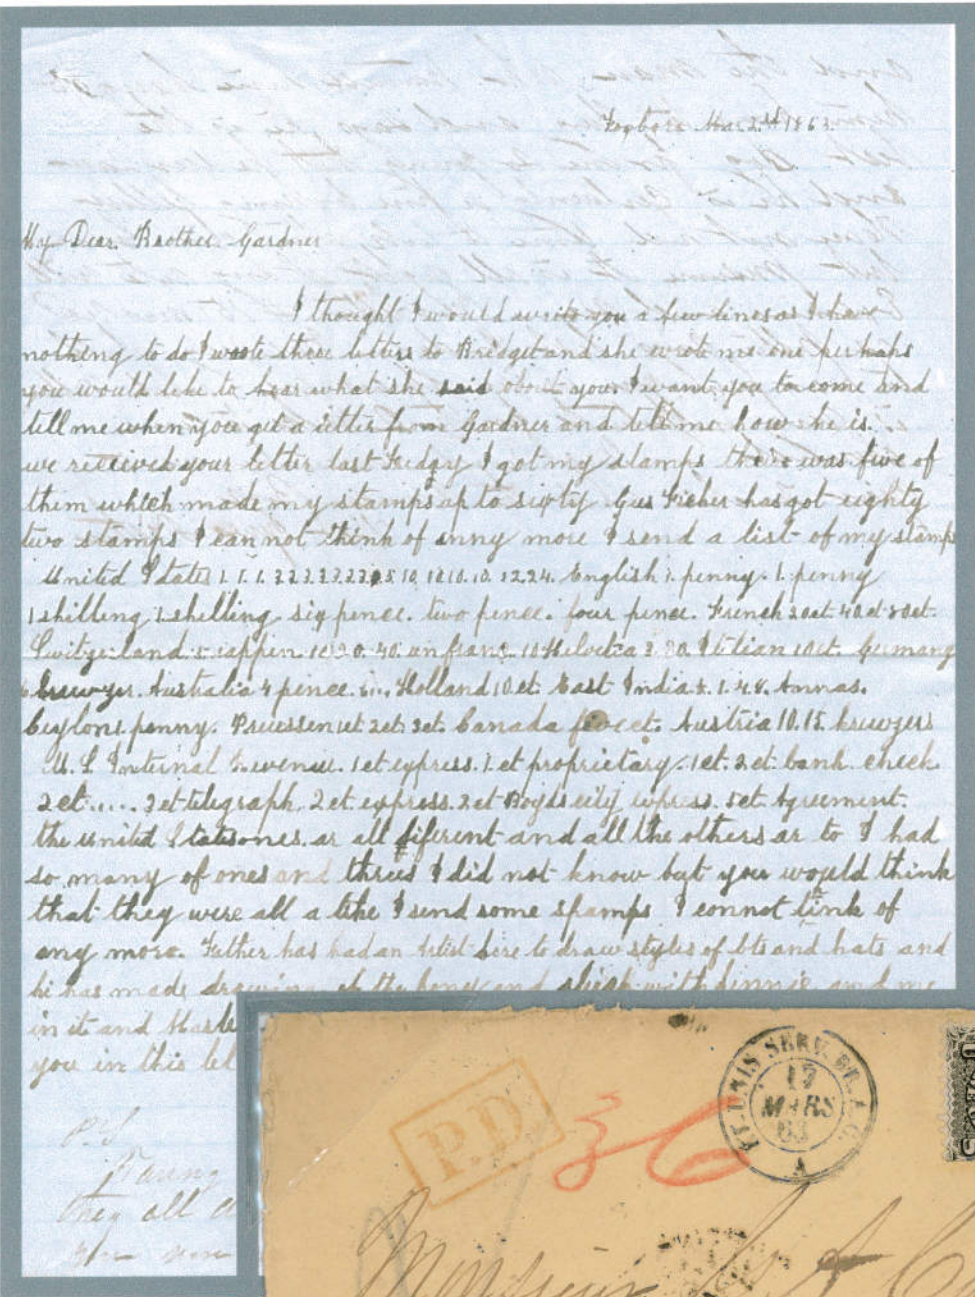 Foxboro Mar 2nd 1863.
My Dear Brother Gardner
I thought I would write you a few lines as I have
nothing to do I wrote three letters to Bridget and she wrote me one perhaps
you would like to hear what she said about you. I want you to come and
tell me when you get a letter from Gardner and tell me how he is.
we received your letter last I got my stamps there was five of
them which made my stamps up to sixty Gus Fisher has got eighty
two stamps I can not think of anny more I send a list of my stamps
United States 1. 1. 1. 3 10. 12. 24. English 1. penny. 1. penny
1 shilling 1. shelling. six pence. two pence. four pence. French 20ct. 40ct. 80ct.
Switzerland 5. rappen 10 20. 40. un franc. 10 Helvetia 3. 20. Itilian 10ct. Germany
kruwzer. Australia 4 pence. 6... Holland 10 ct. East India 1. 4. 8. Annas.
Ceylon 1 penny. 2ct. 3ct. Canada five ct. Austria 10. 15. kruwzers
U. S Internal Revenue. 1 ct express. 1. ct proprietary. 1ct. 2 ct. bank check
2 ct..... 3 ct telegraph. 2 ct express. 2 ct Boyds city express. 5ct. Agreement.
the United States ones. ar all fiferent and all the others ar to I had
so many of ones and threes I did not know but you would think
that they were all a like I send some stamps I connot tink of
any more. Father has had an Artist here to draw styles of bts and hats and
he has made drawing of the poney and sleigh with Jinnie and me
in it and
you in this let
P. S
they all
P.D.
36
ET. UNIS SERV. BR. A. C.
17
MARS
63
A
Monsieur